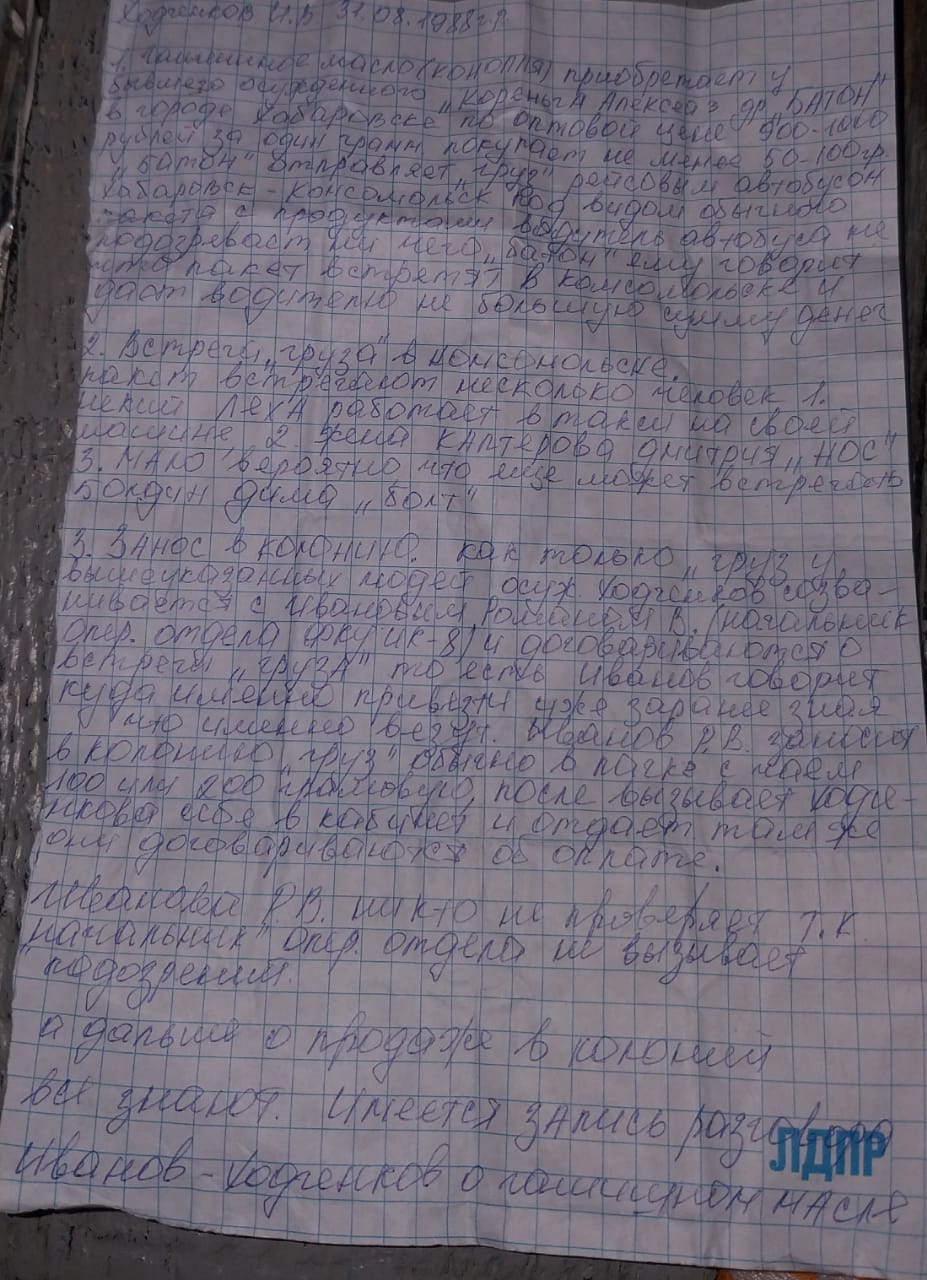 Ходченков И.В 31.08.1988г.р
1. гашишное масло (конопля) приобретает у
бывшего осужденного "Кореньга Алексея з др "БАТОН"
в городе Хабаровске по оптовой цене 900-1000
рублей за один грамм покупает не менее 50-100гр.
"Батон" отправляет "груз" рейсовым автобусом
Хабаровск - Комсомольск под видом обычного
пакета с продуктами водитель автобуса не
подозревает ни чего, "батон" ему говорит
что пакет встретят в Комсомольске и
дает водителю не большую сумму денег
2. Встреча "груза" в Комсомольске.
пакет встречают несколько человек 1.
некий ЛЯХА работает в такси на своей
машине, 2. Жена Каптерова Дмитрия "НОС"
3. Мало вероятно, что еще может встречать
Болдин Дима "болт"
3. Занос в колонию. как только "груз у
вышеуказанных людей осуж. Ходченков созва-
нивается с Ивановым Романом В. (начальник
опер. отдела ФКУ ИК-8) и договариваются о
встречи "груза" то есть Иванов говорит
куда именно привезти уже заранее зная
что именно везут. Иванов Р.В. заносит
в колонию "груз" обычно в пачке с чаем
100 или 200 граммовую, после вызывает Ходче-
нкова себе в кабинет и отдает там же
они договариваются об оплате.
Иванова Р.В. никто не проверяет т.к.
"начальник" опер. отдела не вызывает
подозрений.
а дальше о продаже в колоний
все знают. Имеется запись разговора
ЛДПР
Иванов - Ходченков о гашишном масле